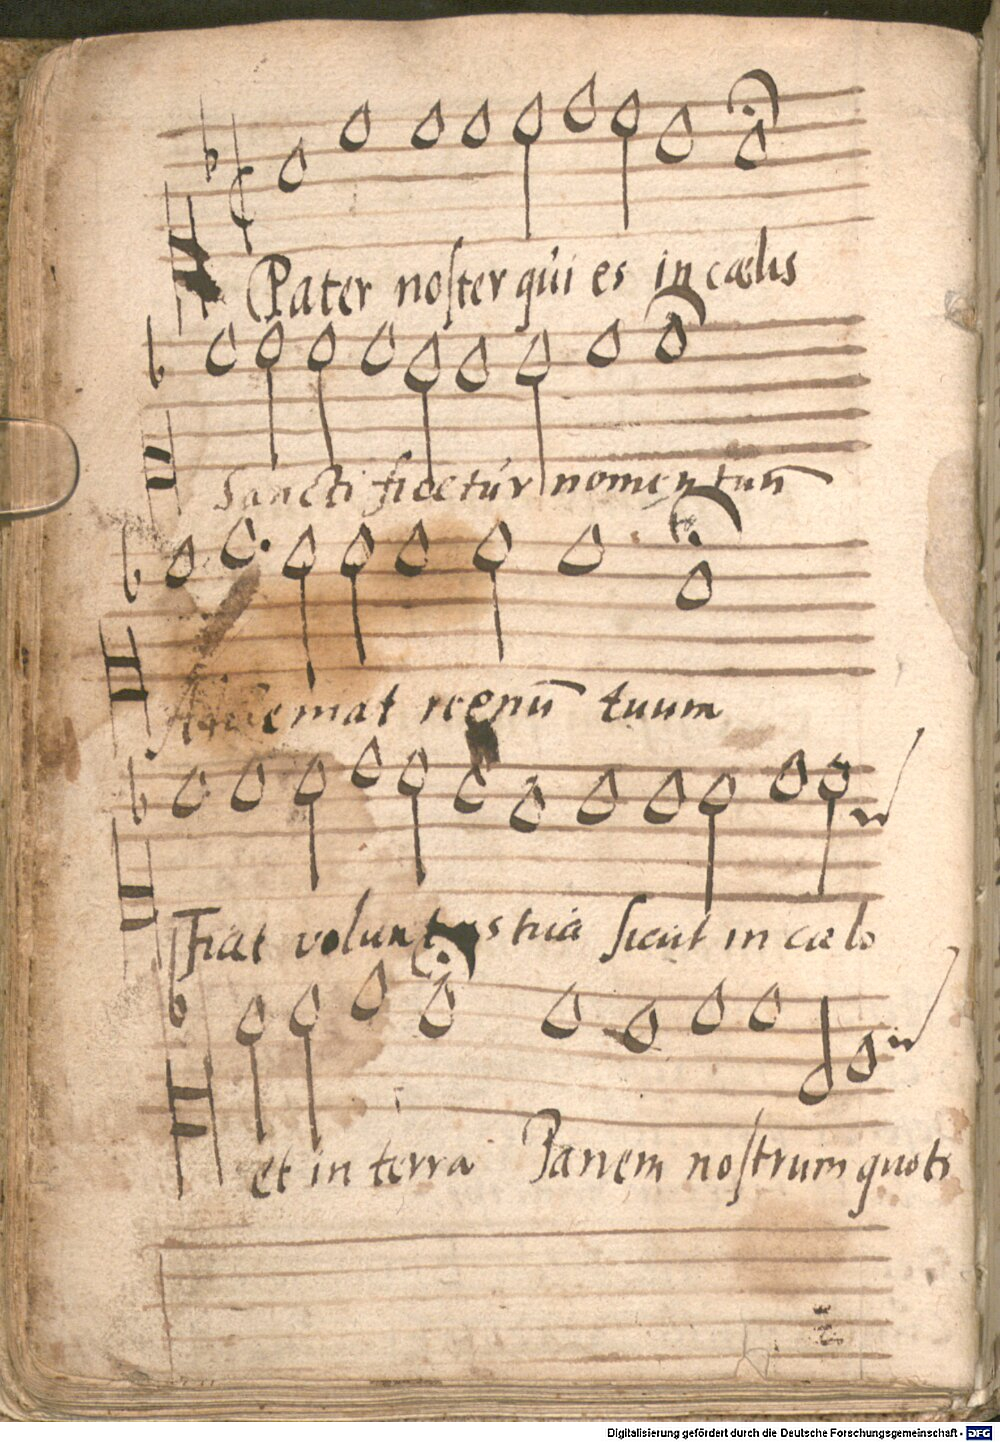 Pater noſter qui es in cœlis
Sanctificetur nomen tuū
Adveniat regnū tuum
Fiat voluntas tua ſicut in cœlo
et in terra Panem noſtrum quoti
Digitalisierung gefördert durch die Deutsche Forschungsgemeinschaft - DFG